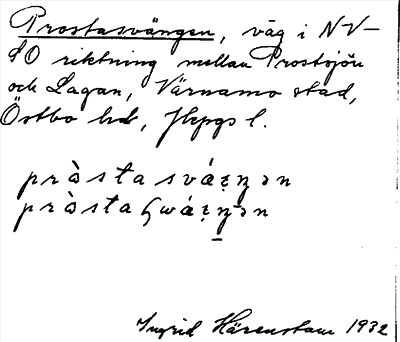 Prostasvängen, väg i NV–
SO riktning mellan Prostsjön
och Lagan, Värnamo stad,
Östbo hd, Jkpgs l.
pràstasvá̤ŋən
pràstaɧwá̤ŋən
Ingrid Härenstam 1932